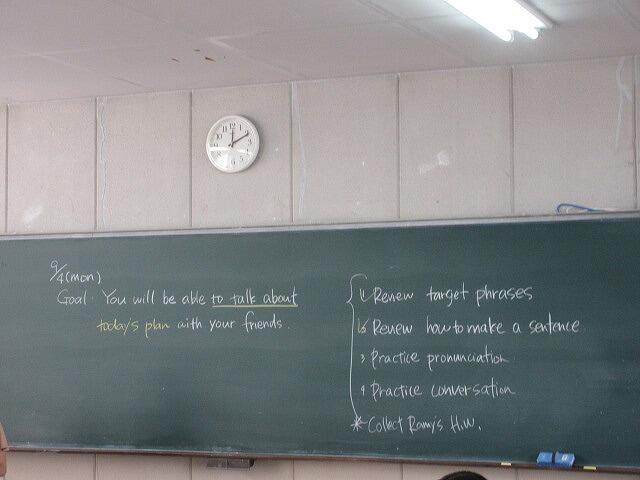 9/4(mon)
Goal: You will be able to talk about
today's plan with your friends.
1 Review target phrases
2 Review how to make a sentence
3 Practice pronunciation
4 Practice conversation
* Collect Romy's H.W.